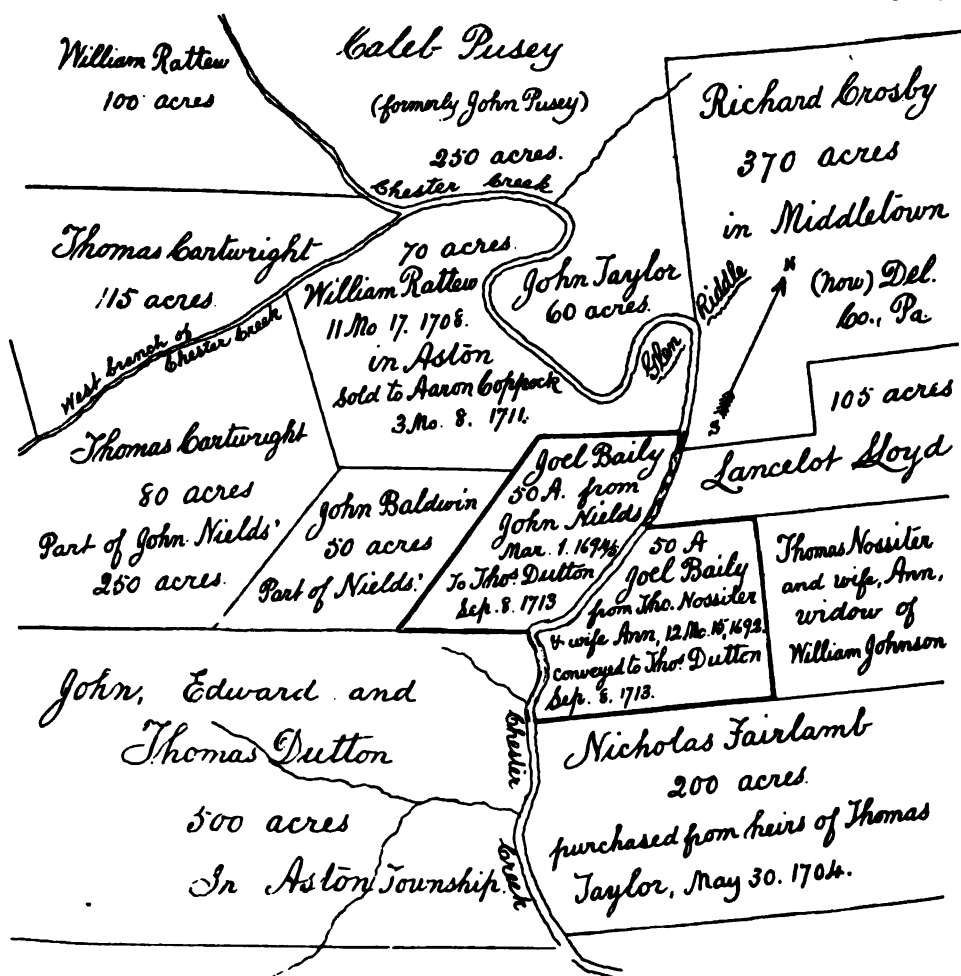 William Rattew
100 acres
Caleb Pusey
(formerly John Pusey)
250 acres.
Chester Creek
Richard Crosby
370 acres
in Middletown
(now) Del.
Co., Pa.
Thomas Cartwright
115 acres.
70 acres.
William Rattew
11 Mo 17. 1708.
in Aston
Sold to Aaron Coppock
3 Mo. 8. 1711.
John Taylor
60 acres.
Glen Riddle
N
S
West branch of
Chester Creek
105 acres
Lancelot Lloyd
Thomas Cartwright
80 acres
Part of John Nields'
250 acres.
John Baldwin
50 acres
Part of Nields'
Joel Baily
50 A. from
John Nields
Mar. 1. 1694/5
To Thos. Dutton
Sep. 8. 1713
50 A
Joel Baily
from Tho. Nossiter
& wife Ann, 12 Mo. 15, 1692.
conveyed to Thos. Dutton
Sep. 8. 1713.
Thomas Nossiter
and wife, Ann,
widow of
William Johnson
John, Edward and
Thomas Dutton
500 acres
In Aston Township.
Chester Creek
Nicholas Fairlamb
200 acres.
purchased from heirs of Thomas
Taylor, May 30. 1704.